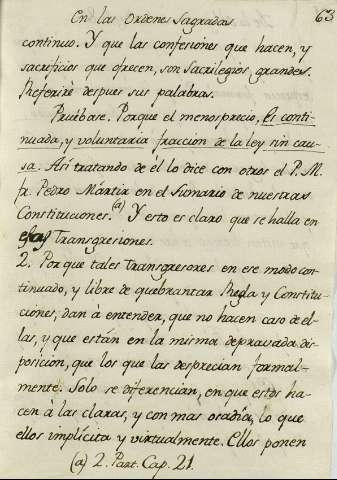 En las Ordenes Sagradas 63
continuo. Y que las confesiones que hacen, y
sacrificios que ofrecen, son Sacrilegios grandes.
Referirè despues sus palabras.
Pruèbase. Porque el menosprecio, Es conti-
nuada, y voluntaria fraccion de la ley sin cau-
sa. Asi tratando de èl lo dice con otros el P. M.
fr. Pedro Mártir en el Sumario de nuestras
Constituciones. (a) Y esto es claro que se halla en
Transgresiones.
2. Porque tales Transgresores en ese modo con-
tinuado, y libre de quebrantar Regla y Constitu-
ciones, dan a entender, que no hacen caso de el-
las, y que están en la misma depravada dis-
posicion, que los que las desprecian formal-
mente. Solo se diferencian, en que estos ha-
cen à las claras, y con mas osadìa, lo que
ellos implícita y virtualmente. Ellos ponen
(a) 2. Part. Cap. 21.